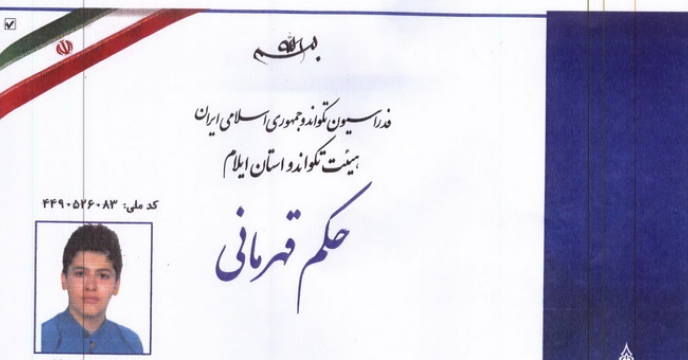 بسم الله
فدراسیون تکواندو جمهوری اسلامی ایران
هیئت تکواندو استان ایلام
حکم قهرمانی
کد ملی: ۴۴۹۰۵۲۶۰۸۳